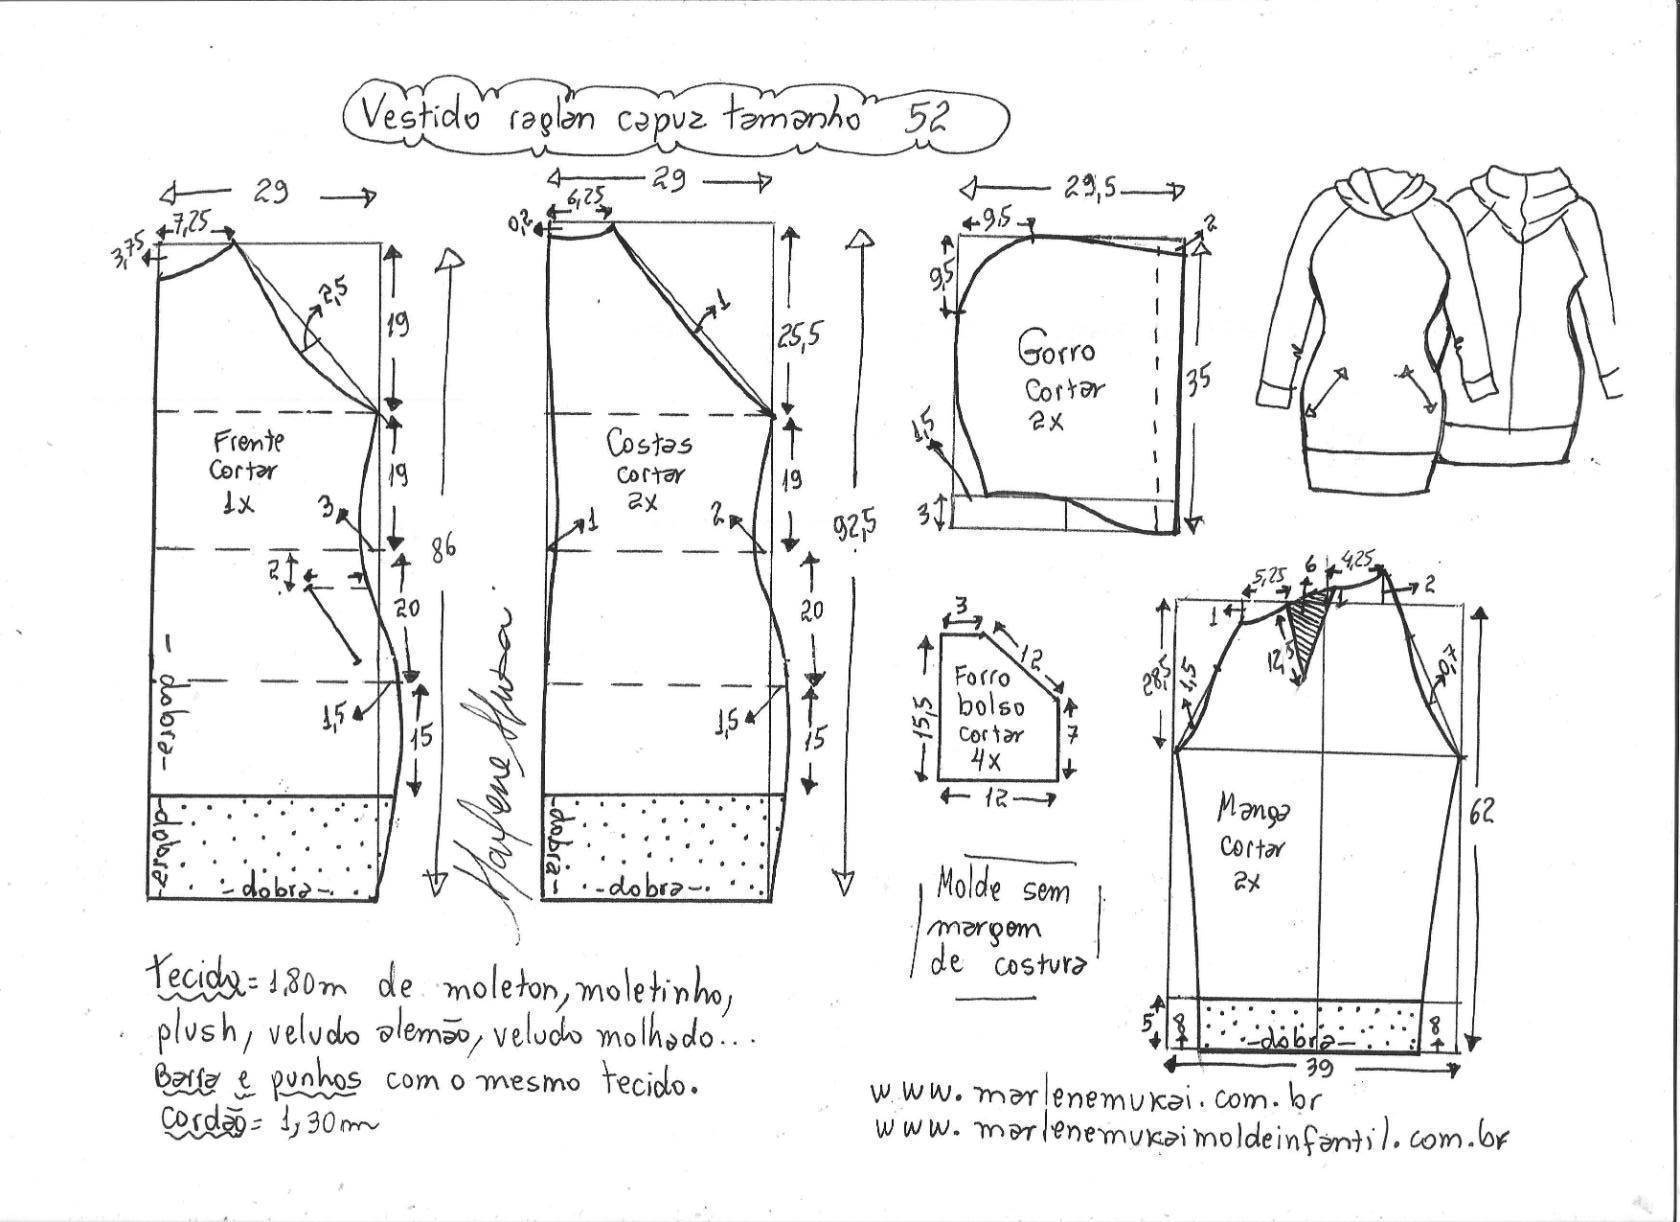 Vestido raglan capuz tamanho 52
29
7,25
3,75
2,5
19
Frente
cortar
1x
19
3
86
2
20
-dobra-
1,5
15
dobra-
-dobra-
29
6,25
0,2
1
25,5
Costas
cortar
2x
19
1
2
92,5
20
1,5
15
dobra-
-dobra-
29,5
9,5
2
9,5
Gorro
cortar
2x
35
1,5
3
3
12
15,5
Forro
bolso
cortar
4x
7
12
5,25
6
4,25
1
1
2
12,5
28,5
1,5
0,7
Manga
cortar
2x
62
5
8
-dobra-
8
39
Molde sem
margem
de costura
Marlene Mukai
Tecido= 1,80m de moleton, moletinho,
plush, veludo alemão, veludo molhado...
Barra e punhos com o mesmo tecido.
Cordão= 1,30m
www.marlenemukai.com.br
www.marlenemukaimoldeinfantil.com.br